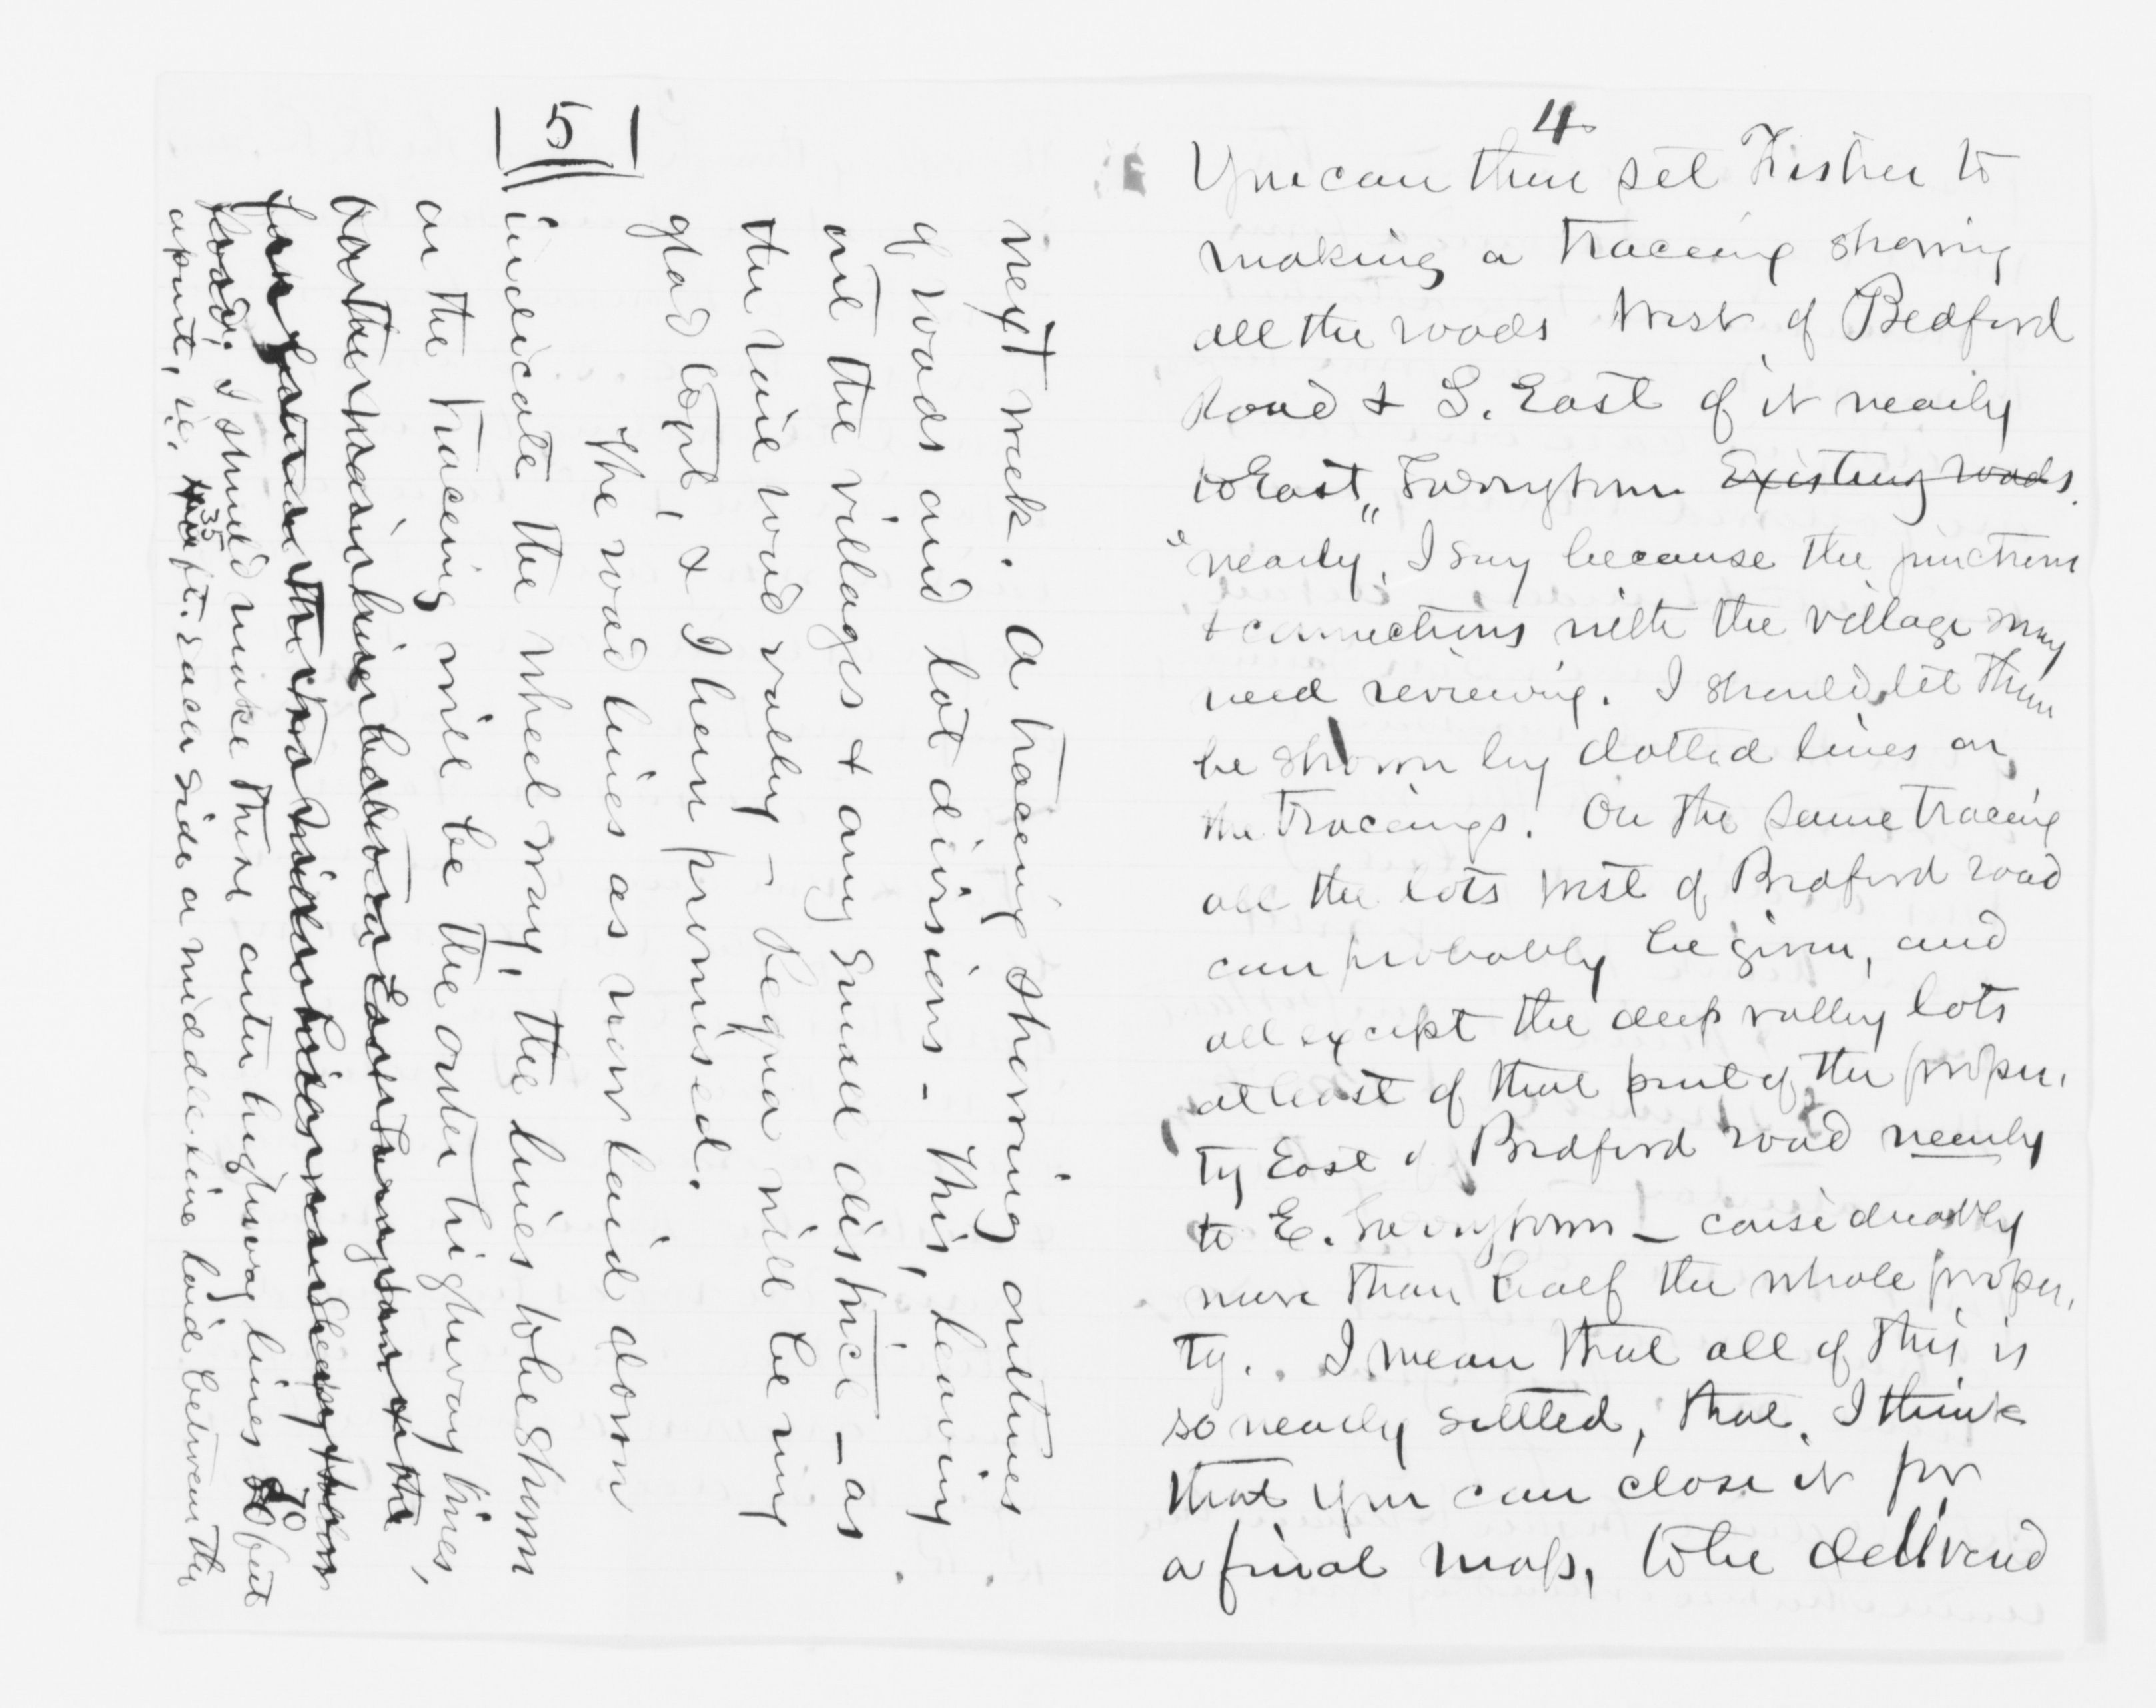 4
You can then set Fisher to
making a tracing showing
all the roads West of Bedford
Road & S. East of it nearly
to East Tarrytown Existing roads.
"nearly", I say because the junctions
& connections with the village may
need reviewing. I should let them
be shown by dotted lines on
the tracings. On the same tracing
all the lots West of Bedford road
can probably be given, and
all except the deep valley lots
at least of that part of the proper-
ty East of Bedford road nearly
to E. Tarrytown — considerably
more than half the whole proper-
ty. I mean that all of this is
so nearly settled, that, I think
that you can close it for
a final map, to be delivered
5
next week. A tracing showing outlines
of roads and lot divisions - This, leaving
out the villages & any small district — as
the rail road valley — Requa will be very
glad to get, & I have promised.
The road lines as now laid down
indicate the wheel way, the lines to be shown
on the tracing will be the outer highway lines,
on the main line between East Tarrytown & the
the two Sleepy Hollow
Roads. I should make these outer highway lines 70 feet
apart, i.e. 35 ft. each side a middle line laid between the